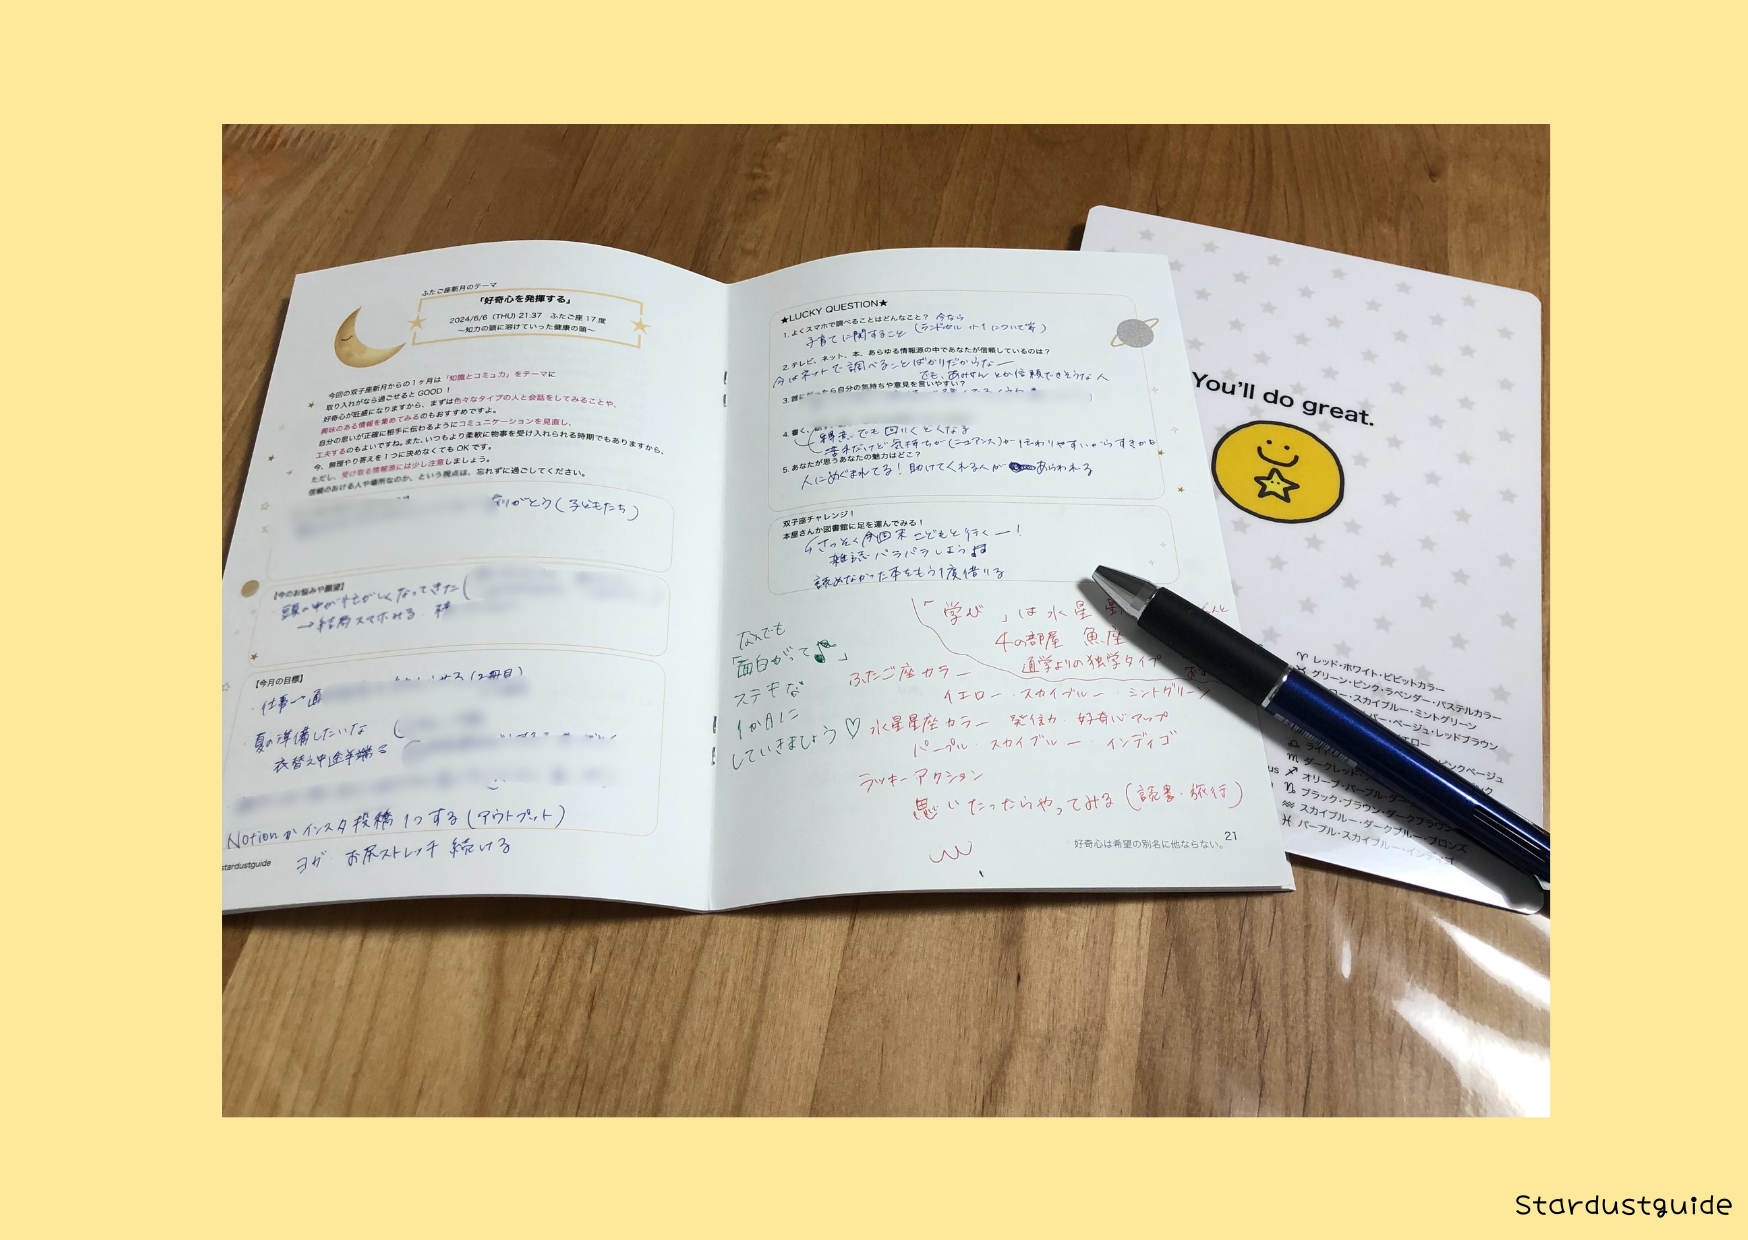 ふたご座新月のテーマ
「好奇心を発揮する」
2024/6/6 (THU) 21:37 ふたご座 17度
〜知力の頭に溶けていった健康の頭〜
今回の双子座新月からの1ヶ月は「知識とコミュ力」をテーマに
取り入れがなら過ごせるとGOOD！
好奇心が旺盛になりますから、まずは色々なタイプの人と会話をしてみることや、
興味のある情報を集めてみるのもおすすめですよ。
自分の思いが正確に相手に伝わるようにコミュニケーションを見直し、
工夫するのもよいですね。また、いつもより柔軟に物事を受け入れられる時期でもありますから、
今、無理やり答えを1つに決めなくてもOKです。
ただし、受け取る情報源には少し注意しましょう。
信頼のおける人や場所なのか、という視点は、忘れずに過ごしてください。
ありがとう(子どもたち)
【今のお悩みや願望】
頭の中が忙がしくなってきた(
→結局スマホみる
【今月の目標】
仕事一通
(2冊目)
夏の準備したいな
衣替え中途半端
Notionかインスタ投稿1つする(アウトプット)
ヨガ お尻ストレッチ 続ける
stardustguide
★LUCKY QUESTION★
1. よくスマホで調べることはどんなこと？ 今なら
子育てに関すること (ランドセル 小1について等)
2. テレビ、ネット、本、あらゆる情報源の中であなたが信頼しているのは？
今はネットで調べることばかりだからなー
でも、あみさんとか信頼できそうな人
3. 誰にだったら自分の気持ちや意見を言いやすい？
4. 書く、
得意 でも 回りくどくなる
苦手だけど気持ちが(ニュアンス)が伝わりやすいから
5. あなたが思うあなたの魅力はどこ？
人にめぐまれてる！助けてくれる人が あらわれる
双子座チャレンジ！
本屋さんか図書館に足を運んでみる！
さっそく今週末こどもと行くー！
雑誌パラパラしよう
読めなかった本をもう1度借りる
なんでも
「面白がって♪」
ステキな
1か月に
していきましょう♡
「学び」は水星
4の部屋 魚座
通学よりの独学タイプ
ふたご座カラー
イエロー・スカイブルー・ミントグリーン
水星星座カラー 発信力・好奇心アップ
パープル・スカイブルー・インディゴ
ラッキーアクション
思いたったらやってみる (読書・旅行)
21
好奇心は希望の別名に他ならない。
You'll do great.
♈ レッド・ホワイト・ビビットカラー
グリーン・ピンク・ラベンダー・パステルカラー
ロー・スカイブルー・ミントグリーン
バー・ベージュ・レッドブラウン
エロー
ピンクベージュ
♏ ダークレッド・
♐ オリーブ・パープル・
♑ ブラック・ブラウン・ダークブラウン
♒ スカイブルー・ダークブルー・ブロンズ
♓ パープル・スカイブルー・インディゴ
Stardustguide